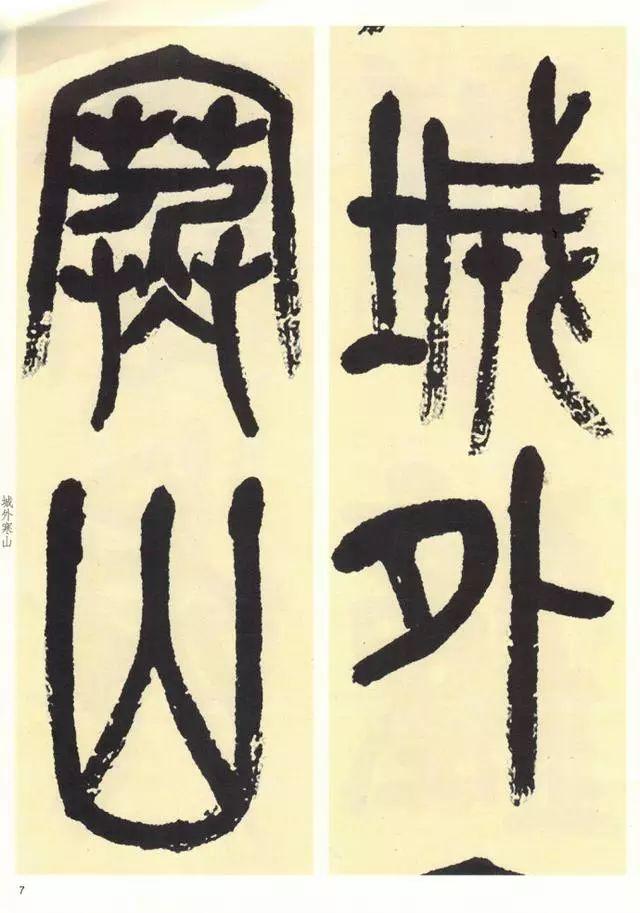 城外
寒山
城外寒山
7